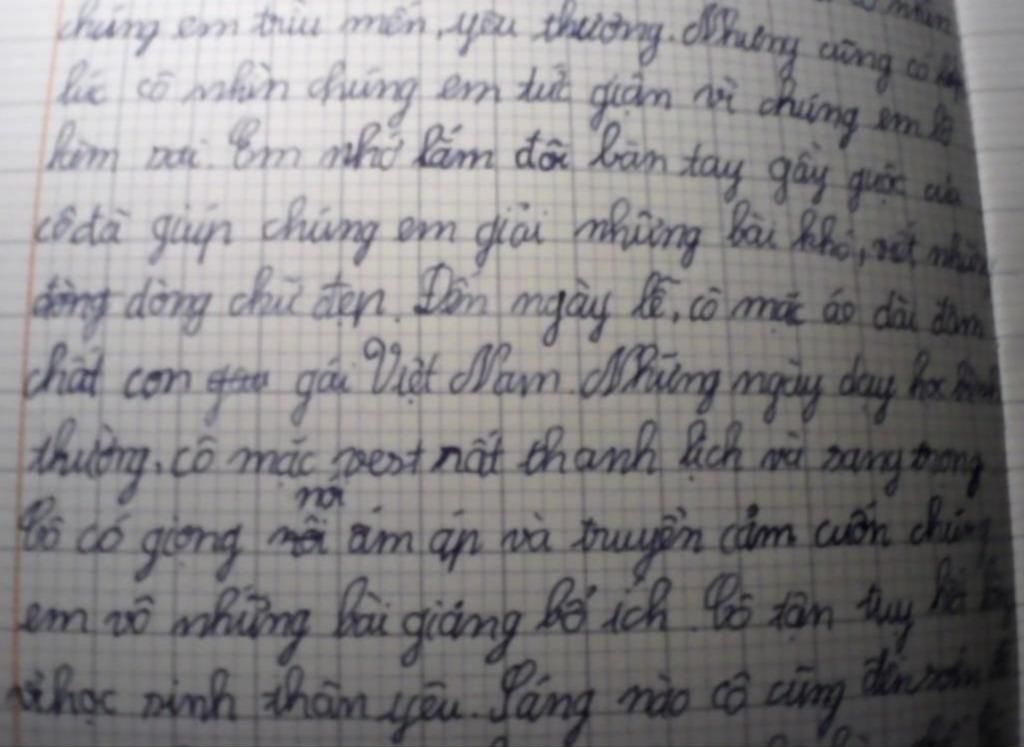 chúng em trìu mến, yêu thương. Nhưng cũng có
lúc cô nhìn chúng em tức giận vì chúng em
kèm rơi. Em nhớ lắm đôi bàn tay gầy guộc của
cô đã giúp chúng em giải những bài khó, viết nhiều
dòng dòng chữ đẹp. Đến ngày lễ, cô mặc áo dài đậm
chất con gái Việt Nam. Những ngày dạy học bình
thường, cô mặc vest rất thanh lịch và sang trọng
Cô có giọng nói ấm áp và truyền cảm cuốn chúng
em vô những bài giảng bổ ích. Cô tận tụy hết lòng
vì học sinh thân yêu. Sáng nào cô cũng đến sớm